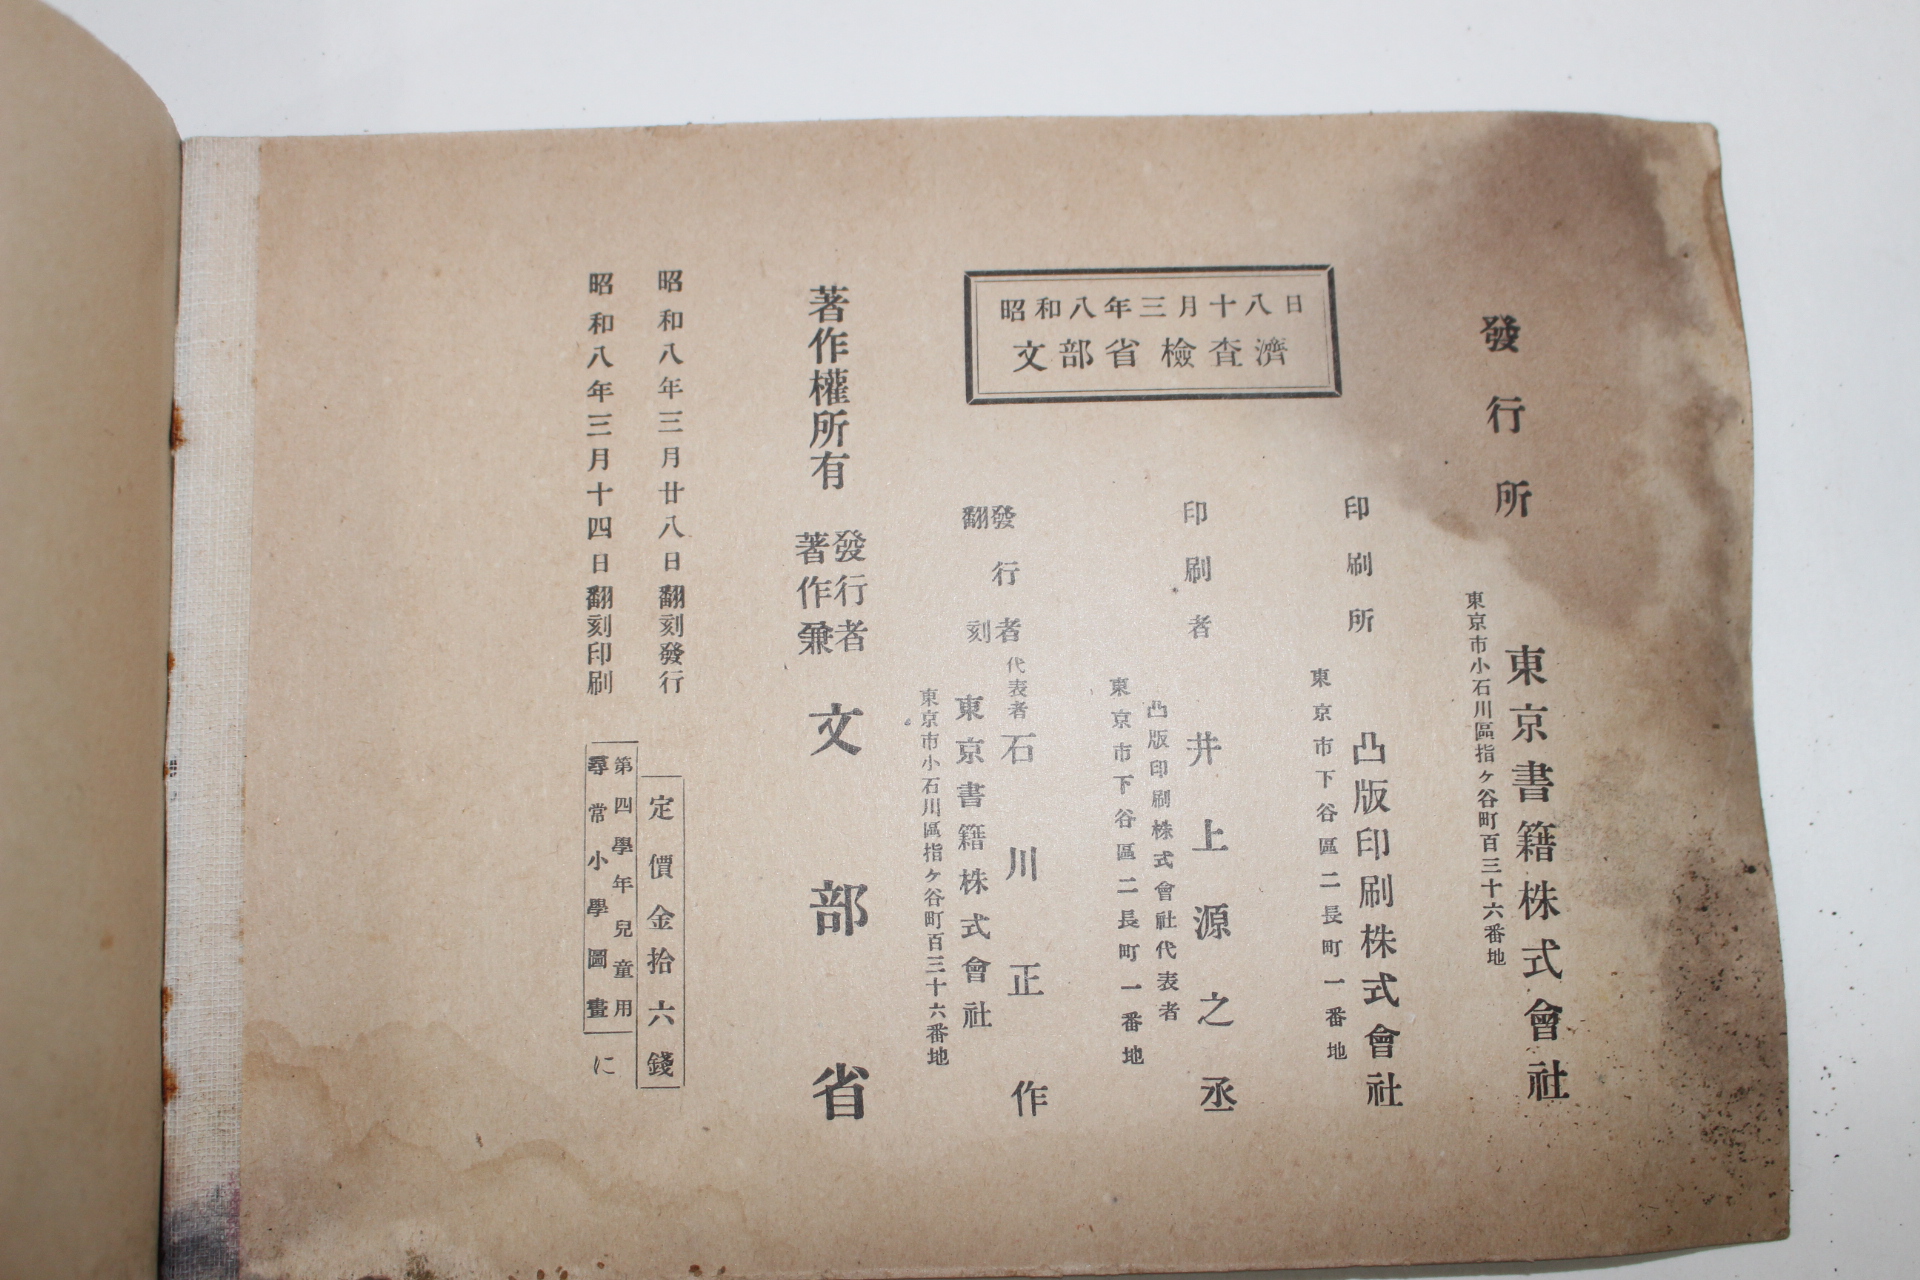 昭和八年三月十四日翻刻印刷
昭和八年三月廿八日翻刻發行
尋常小學圖畫 に
第四學年兒童用
定價金拾六錢
著作權所有
著作兼
發行者
文部省
昭和八年三月十八日
文部省檢査濟
翻刻
發行者
東京市小石川區指ヶ谷町百三十六番地
東京書籍株式會社
代表者 石川正作
印刷者
東京市下谷區二長町一番地
凸版印刷株式會社代表者
井上源之丞
印刷所
東京市下谷區二長町一番地
凸版印刷株式會社
發行所
東京市小石川區指ヶ谷町百三十六番地
東京書籍株式會社